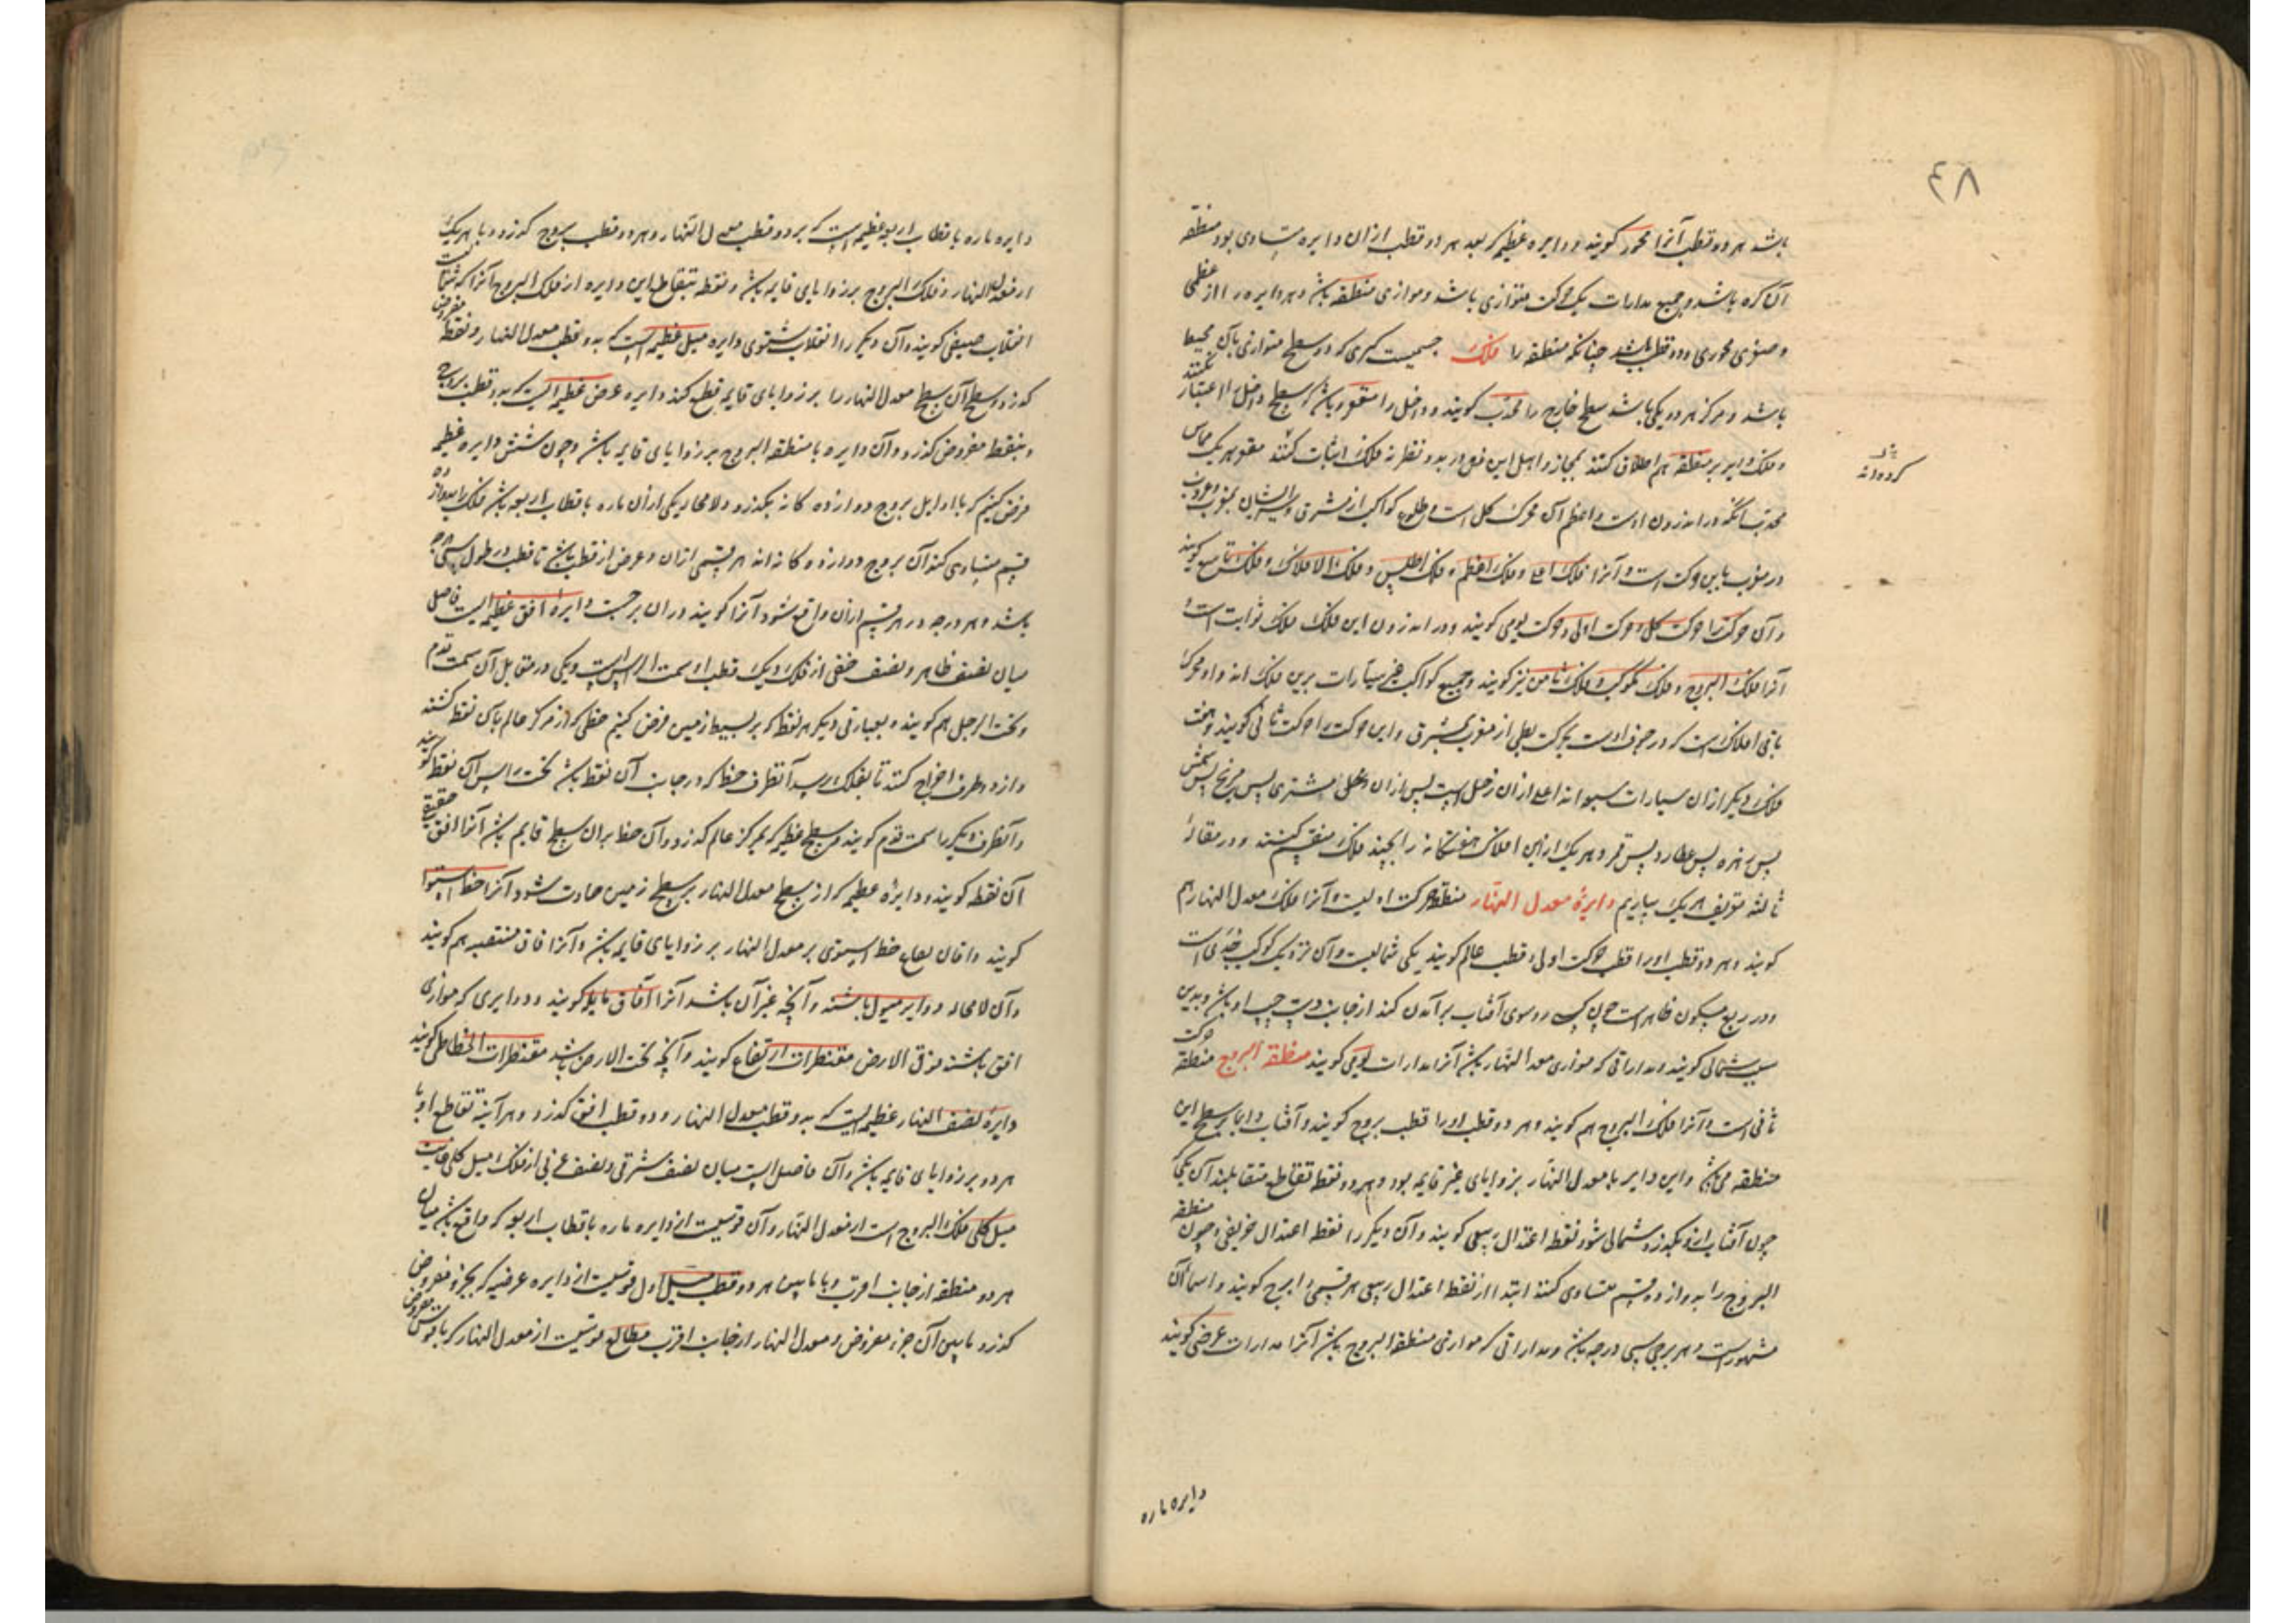 ۴۸
باشد هر دو قطب آنرا محور کویند و دایره عظیمه که بعد هر دو قطب ازان دایره متساوی بود منطقه
آن کره باشد و جمیع مدارات یک حرکت متوازی باشد و موازی منطقه باشد و هر دایره را از عظمی
و صغری محوری و دو قطب باشد چنانکه منطقه را فلک جسمیست کری که دو سطح متوازی بآن محیط
باشد و مرکز هر دو یکی باشد سطح خارج را محدب کویند و داخل را مقعر و باشد که سطح داخل را اعتبار نکنند
و فلک دایر بر منطقه هم اطلاق کنند بمجاز و اهل این فن نه فلک اثبات کنند مقعر هر یک مماس
محدب آنکه در اندرون اوست و اعظم آن محرک کل است و طلوع کواکب از مشرق و غروب
در مغرب باین حرکت است و آنرا فلک اعلی و فلک اعظم و فلک اطلس و فلک الافلاک و فلک تاسع کویند
و آن حرکت را حرکت کل و حرکت اولی و حرکت یومی کویند و در اندرون این فلک فلک ثوابت است و
آنرا فلک البروج و فلک مکوکب و فلک ثامن نیز کویند و جمیع کواکب غیر سیارات برین فلک اند و او محرک
باقی افلاک است که در جوف اوست بحرکت بطی از مغرب بمشرق و این حرکت را حرکت ثانی کویند و هفت
فلک دیکر ازان سیارات سبعه اند اعلی ازان زحل است پس ازان مشتری پس مریخ پس شمس
پس زهره پس عطارد پس قمر و هر یک ازین افلاک هفتکانه را بچند فلک منقسم کنند و در مقاله
ثالثه تعریف هر یک بیاریم دایرهٔ معدل النهار منطقه حرکت اولیست و آنرا فلک معدل النهار هم
کویند و هر دو قطب او را قطب حرکت اولی و قطب عالم کویند یکی شمالیست و آن نزدیک کوکب جدی است
و در ربع مسکون ظاهر است چون کسی روی سوی آفتاب برآمدن کند از جانب دست چپ او باشد و بدین
سبب شمالی کویند و مداراتی که موازی معدل النهار باشد آنرا مدارات یومی کویند منطقه البروج منطقه حرکت
ثانی است و آنرا فلک البروج هم کویند و هر دو قطب او را قطب بروج کویند و آفتاب دایما بر سطح این
منطقه می باشد و این دایره با معدل النهار بزوایای غیر قایمه بود و هر دو نقطه تقاطع متقابلند آن یکی که
چون آفتاب ازو بکذرد شمالی شود نقطه اعتدال ربیعی کویند و آن دیکر را نقطه اعتدال خریفی و چون منطقه
البروج را بدوازده قسم متساوی کنند ابتدا از نقطه اعتدال ربیعی هر قسمی را برج کویند و اسماء آن
مشهور است و هر برجی سی درجه باشد و مداراتی که موازی منطقه البروج باشد آنرا مدارات عرضی کویند
دایره ماره
دایره ماره باقطاب اربعه عظیمه است که بر دو قطب معدل النهار و هر دو قطب بروج کذرد و با هر یک
از معدل النهار و فلک البروج بر زوایای قایمه باشد و نقطه تقاطع این دایره از فلک البروج آنرا که شمالیست
انقلاب صیفی کویند و آن دیکر را انقلاب شتوی دایره میل عظیمه است که بدو قطب معدل النهار و نقطه مفروض
کذرد و سطح آن سطح معدل النهار را بر زوایای قایمه قطع کند دایره عرض عظیمه ایست که بدو قطب بروج
و بنقطه مفروض کذرد و آن دایره با منطقه البروج بر زوایای قایمه باشد و چون شش دایره عظیمه
فرض کنیم که باوایل بروج دوازده کانه بکذرد و لامحاله یکی ازان ماره باقطاب اربعه باشد فلک را بدوازده
قسم متساوی کند آن بروج دوازده کانه اند هر قسمی ازان و عرض از قطب باشد تا قطب و در طول سی درجه
باشد و هر درجه در هر قسم ازان واقع شود آنرا کویند در ان برجست دایره افق عظیمه ایست فاصل
میان نصف ظاهر و نصف خفی از فلک و یک قطب او سمت الراس است و یکی در مقابل آن سمت قدم
و تحت الرجل هم کویند و بعبارتی دیکر هر نقطه که بر بسیط زمین فرض کنیم خطی که از مرکز عالم بآن نقطه کشند
و از دو طرف اخراج کنند تا بفلک رسد آنطرف خط که در جانب آن نقطه باشد سمت راس آن نقطه کویند
و آنطرف دیکر را سمت قدم کویند و سطح عظیمه که بمرکز عالم کذرد و آن خط بران سطح قایم باشد آنرا افق حقیقی
آن نقطه کویند و دایرهٔ عظیمه که از سطح معدل النهار بر سطح زمین حادث شود آنرا خط استوا
کویند و افاق بقاع خط استوی بر معدل النهار بر زوایای قایمه باشد و آنرا افاق مستقیمه هم کویند
و آن لامحاله دوایر میول باشند و آنچه غیر آن باشد آنرا آفاق مایله کویند و دوایری که موازی
افق باشند فوق الارض مقنطرات ارتفاع کویند و آنچه تحت الارض باشد مقنطرات انحطاط کویند
دایرهٔ نصف النهار عظیمه ایست که بدو قطب معدل النهار و دو قطب افق کذرد و هر آینه تقاطع او با
هر دو بر زوایای قایمه باشد و آن فاصل است میان نصف شرقی و نصف غربی از فلک میل کلی غایت
میل کلی فلک البروج است از معدل النهار و آن قوسیست از دایره ماره باقطاب اربعه که واقع باشد میان
هر دو منطقه از جانب اقرب و یا مابین هر دو قطب میل اول قوسیست از دایره عرضیه که بجزو مفروض
کذرد مابین آن جزء مفروض و معدل النهار از جانب اقرب مطالع قوسیست از معدل النهار که با قوس مفروض